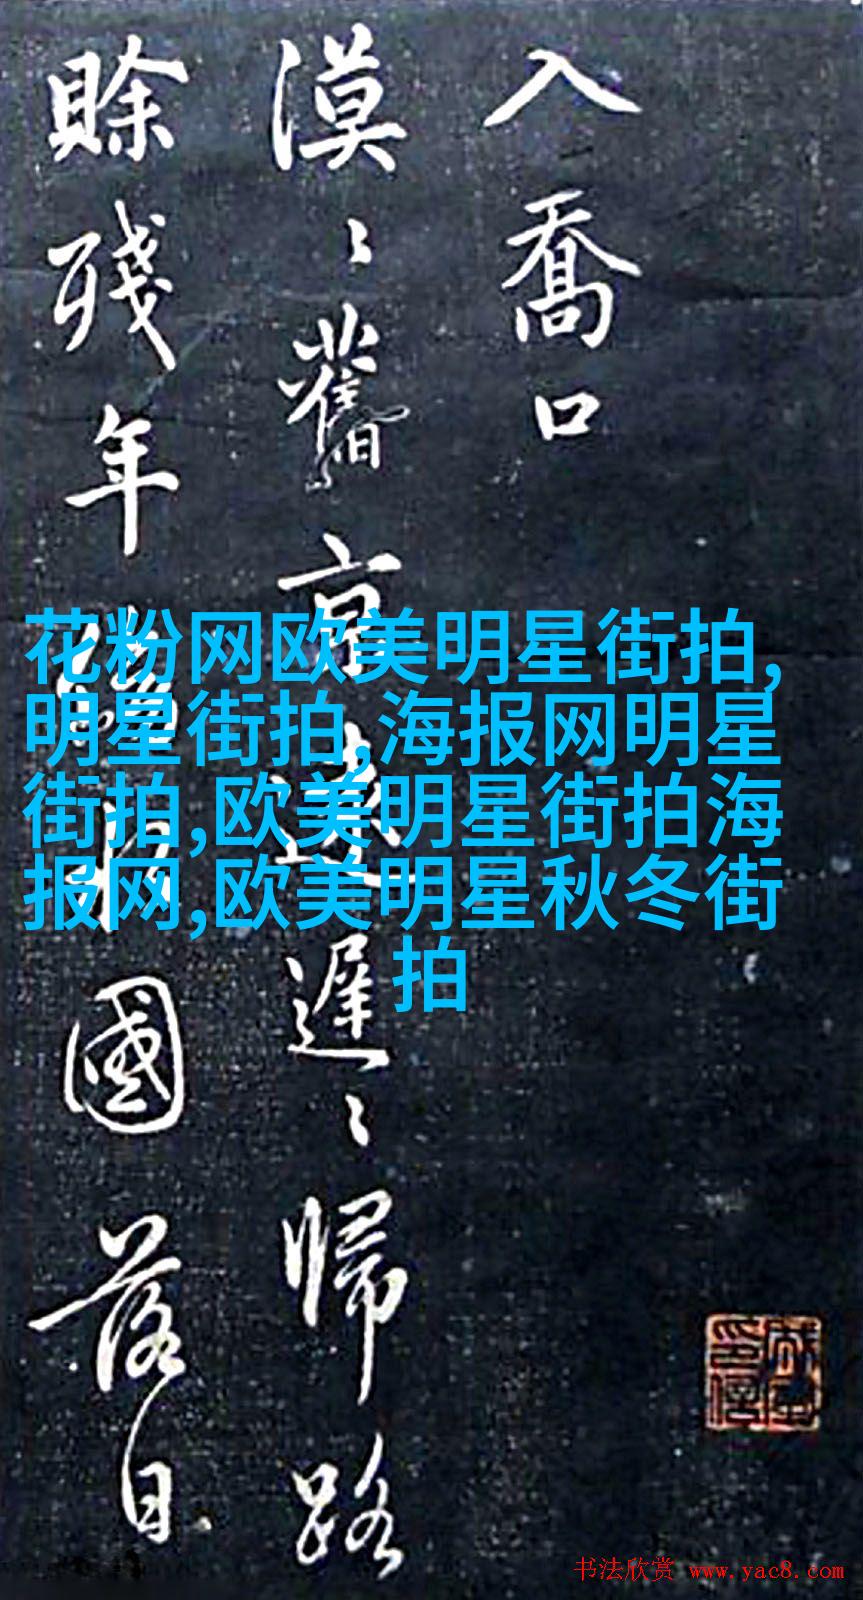 入喬口
漠〻舊京遠遲〻歸路
賖殘年國落日
花粉网欧美明星街拍,
明星街拍,海报网明星
街拍,欧美明星街拍海
报网,欧美明星秋冬街
拍
书法欣赏 www.yac8.com